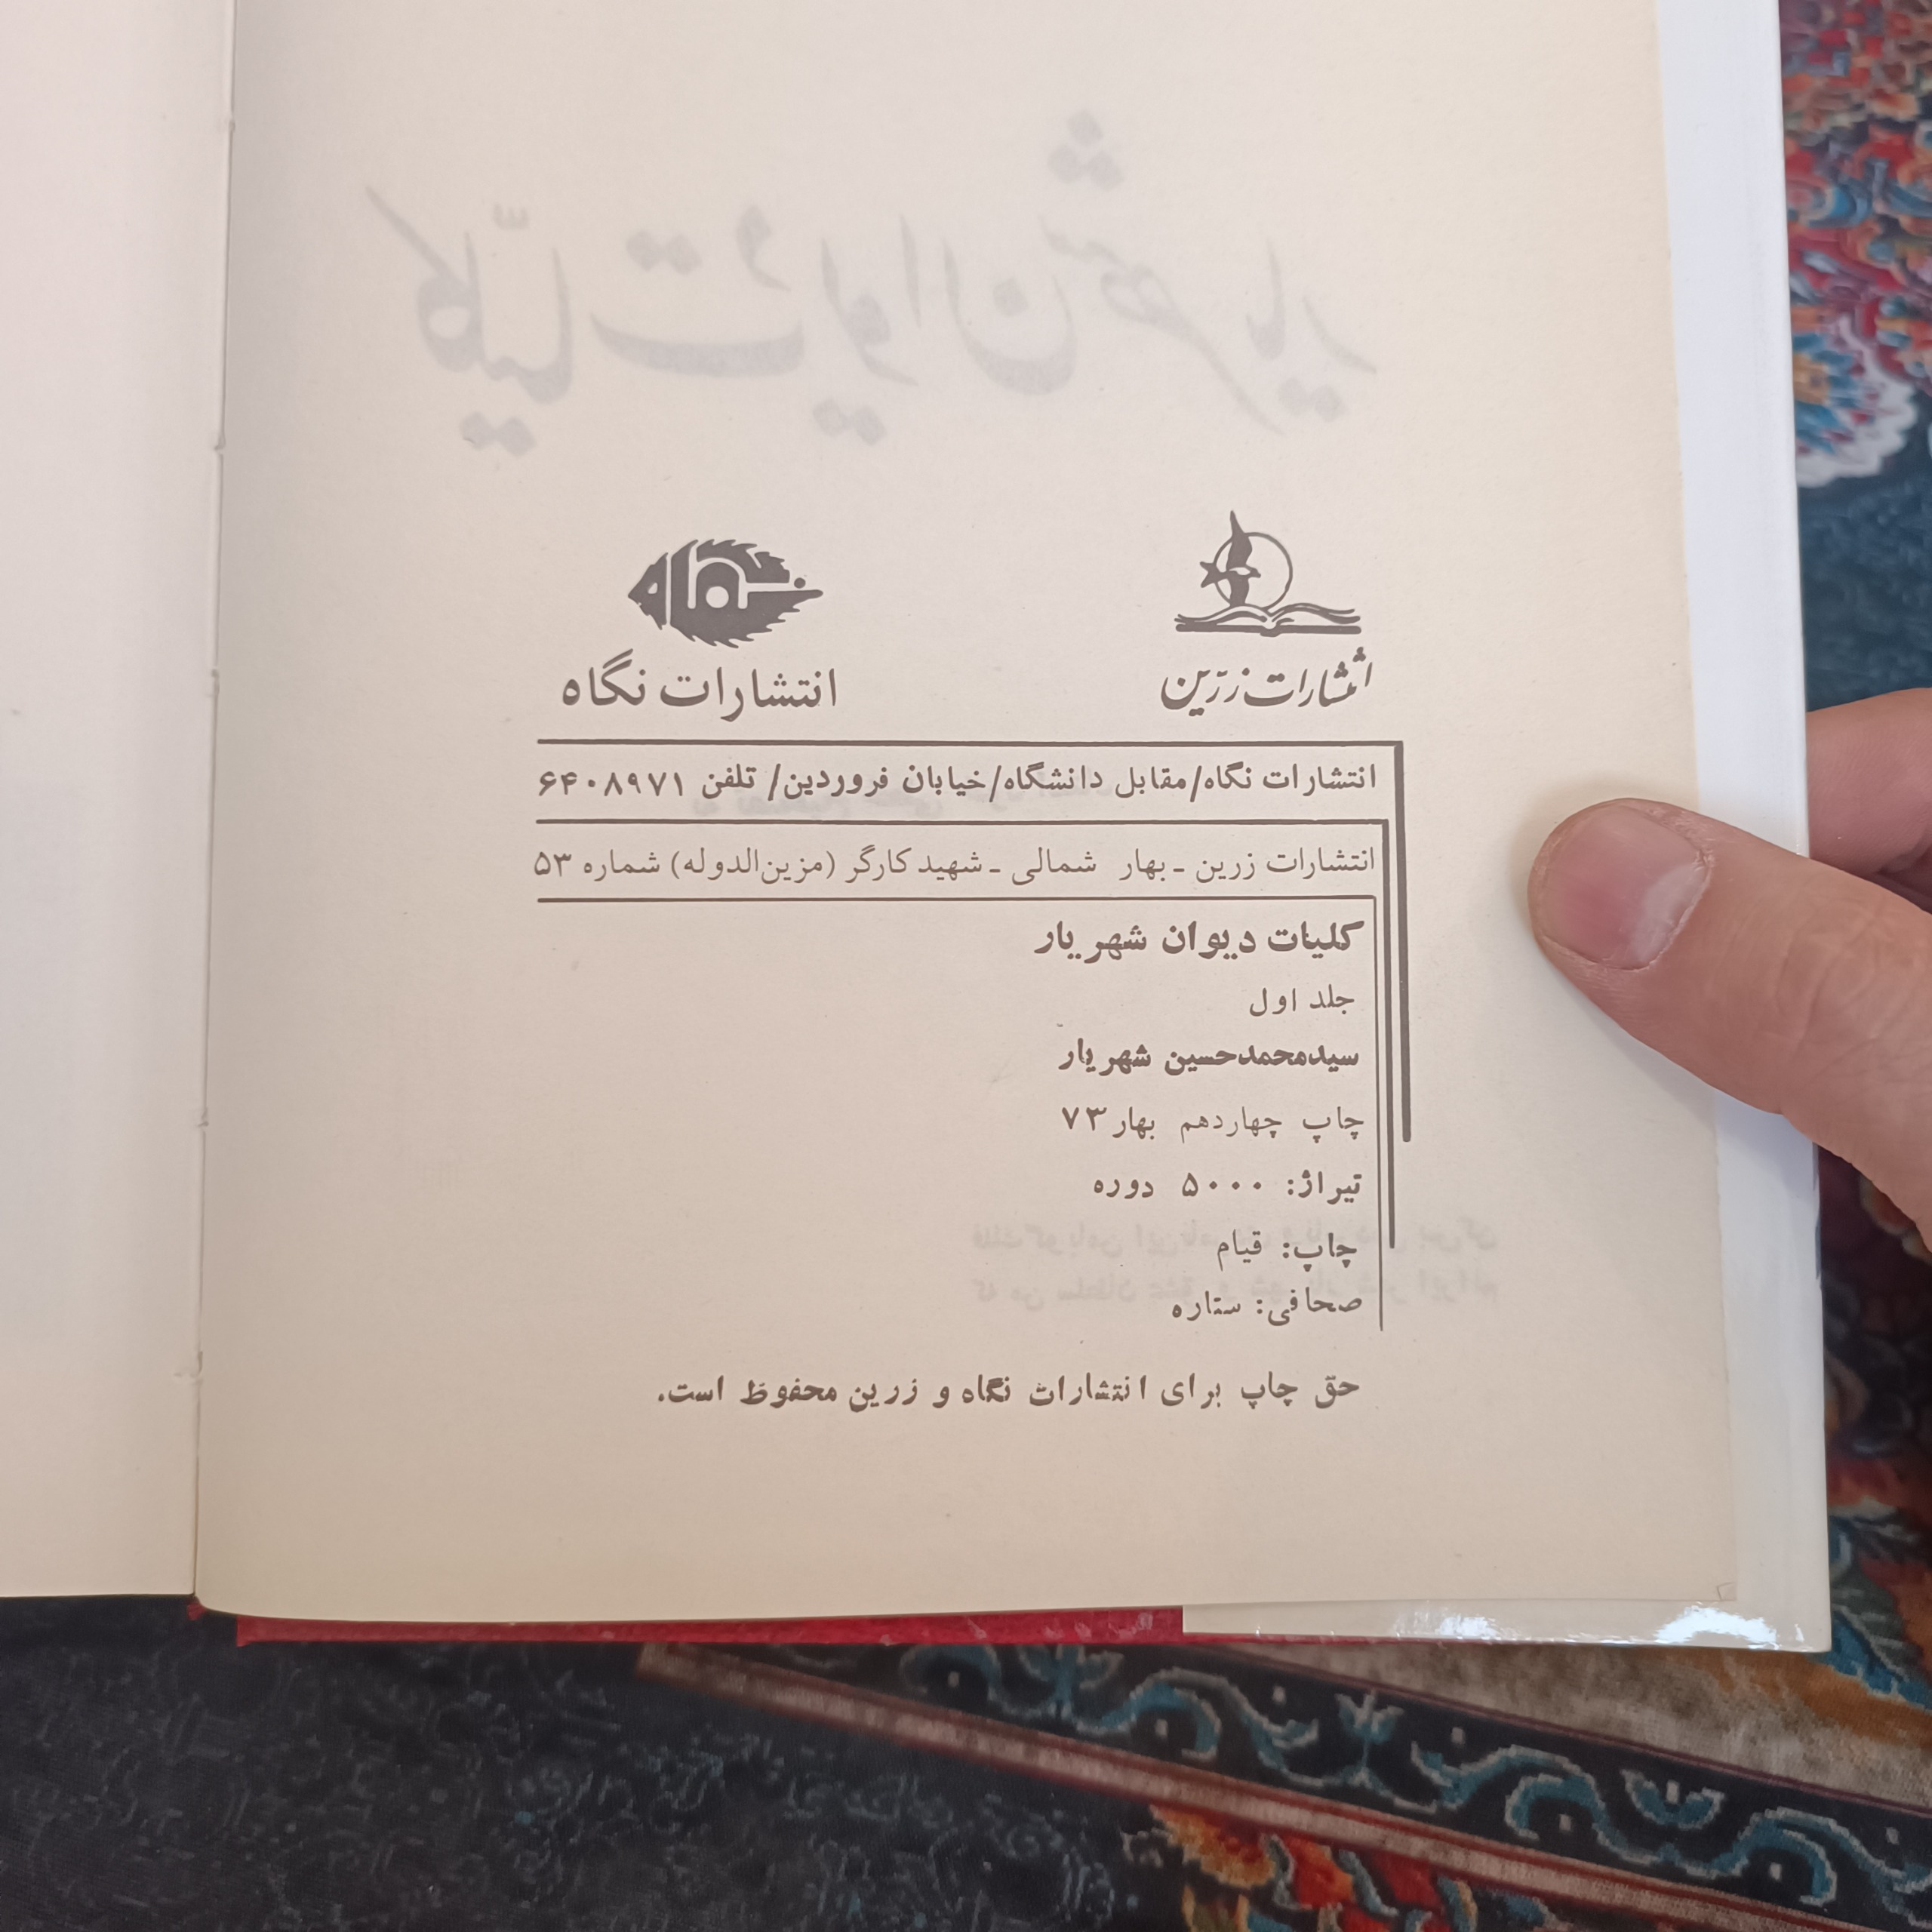 انتشارات زرّین
نگاه
انتشارات نگاه
انتشارات نگاه/مقابل دانشگاه/خیابان فروردین/ تلفن ۶۴۰۸۹۷۱
انتشارات زرین ـ بهار شمالی ـ شهید کارگر (مزین‌الدوله) شماره ۵۳
کلیات دیوان شهریار
جلد اول
سیدمحمدحسین شهریار
چاپ چهاردهم بهار ۷۳
تیراژ: ۵۰۰۰ دوره
چاپ: قیام
صحافی: ستاره
حق چاپ برای انتشارات نگاه و زرین محفوظ است.